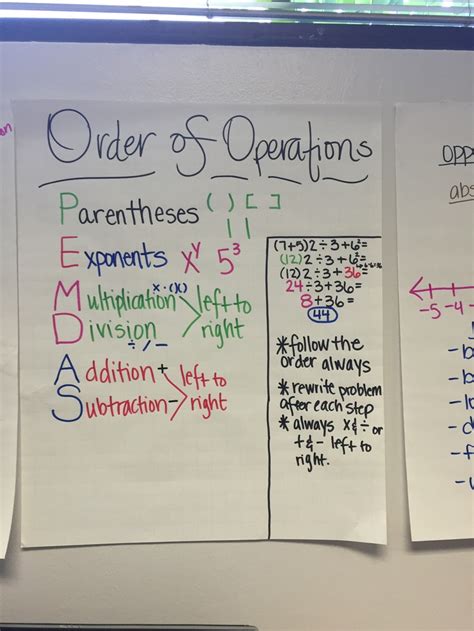 Order of Operations
Parentheses ( ) [ ]
| |
Exponents xʸ 5³
Multiplication x · ( )( )
Division ÷ / −
left to
right
Addition +
Subtraction −
left to
right
(7+5)2÷3+6²=
(12)2÷3+6²=
(12)2÷3+36=
24÷3+36=
8+36=
44
*follow the
order always
*rewrite problem
after each step
*always x & ÷ or
+ & - left to
right.
on
opp
abs
-5 -4